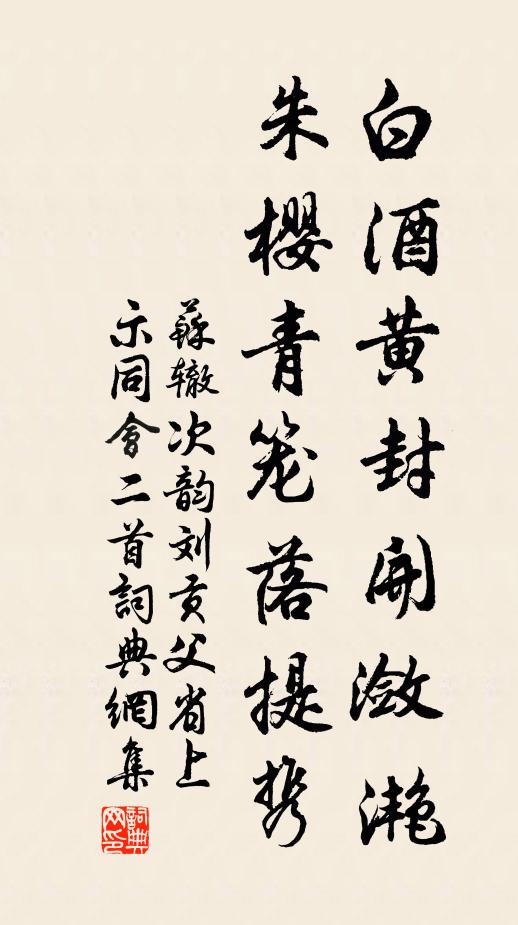 白酒黄封開瀲灩
朱櫻青笼落提携
蘇辙次韵刘贡父省上
示同會二首詞典網集
詞典网印